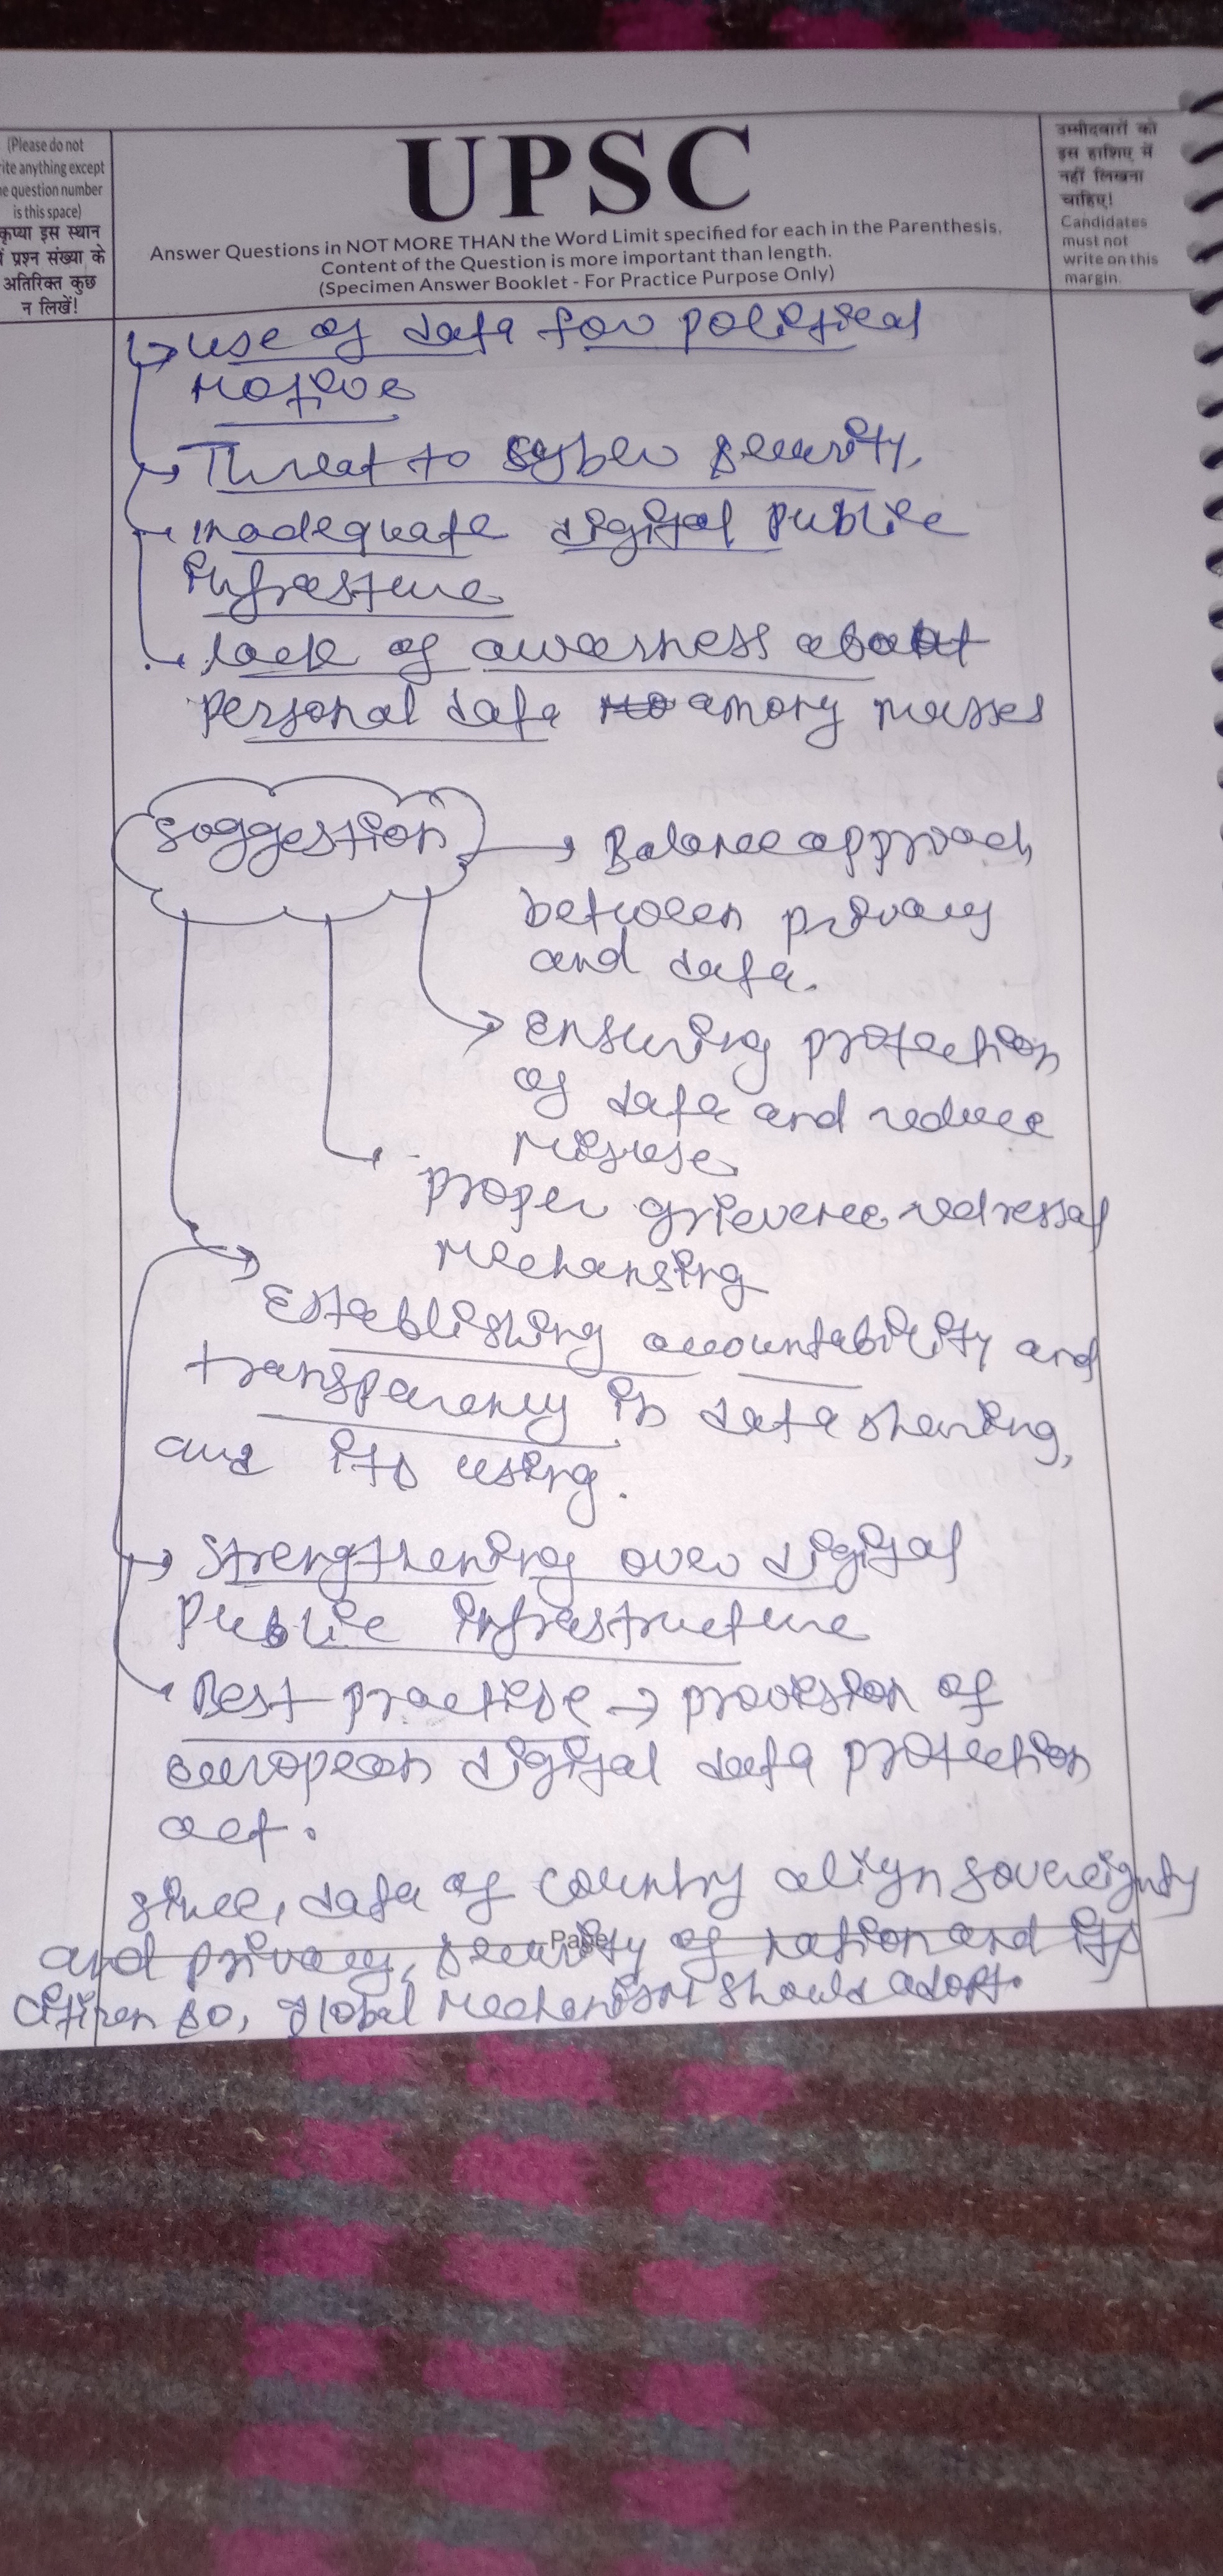 (Please do not
ite anything except
e question number
is this space)
कृप्या इस स्थान
में प्रश्न संख्या के
अतिरिक्त कुछ
न लिखें!
UPSC
Answer Questions in NOT MORE THAN the Word Limit specified for each in the Parenthesis.
Content of the Question is more important than length.
(Specimen Answer Booklet - For Practice Purpose Only)
उम्मीदवारों को
इस हाशिए में
नहीं लिखना
चाहिए!
Candidates
must not
write on this
margin.
use of data for political
motive
Threat to syber security,
inadequate digital public
infrasture
lack of awarness about
personal data among masses
suggestion
Balance approach
between privacy
and data.
ensuring protection
of data and reduce
misuse
proper grievence redressal
mechansing
Establishing accountability and
transparency in data sharing,
and its using.
Strengthening over digital
Public infrastructure
Best practise → provision of
european digital data protection
act.
since, data of country align sovereignty
and privacy, security of nation and its
Page
citizen so, global mechanism should adopt.